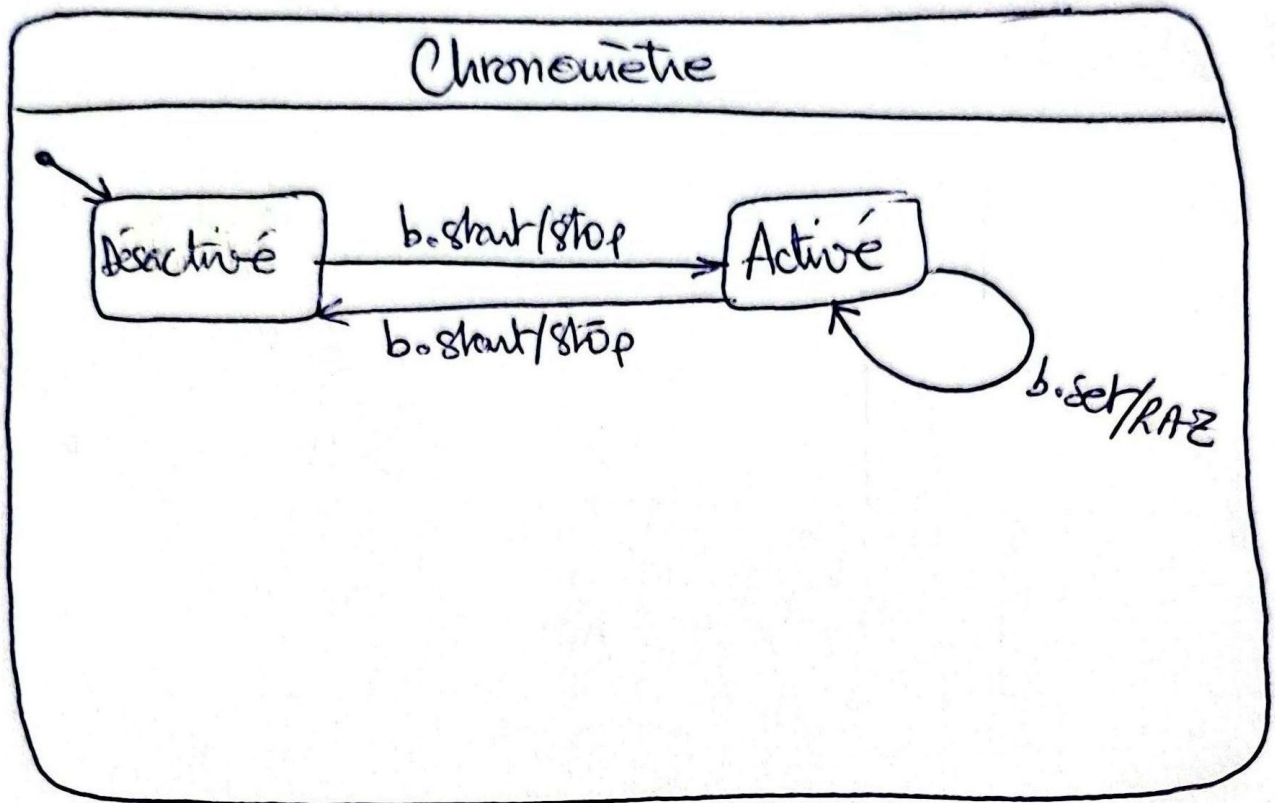 Chronomètre
Désactivé
b.start/stop
Activé
b.start/stop
b.set/RAZ